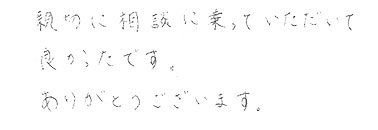 親切に相談に乗っていただいて
良かったです。
ありがとうございます。